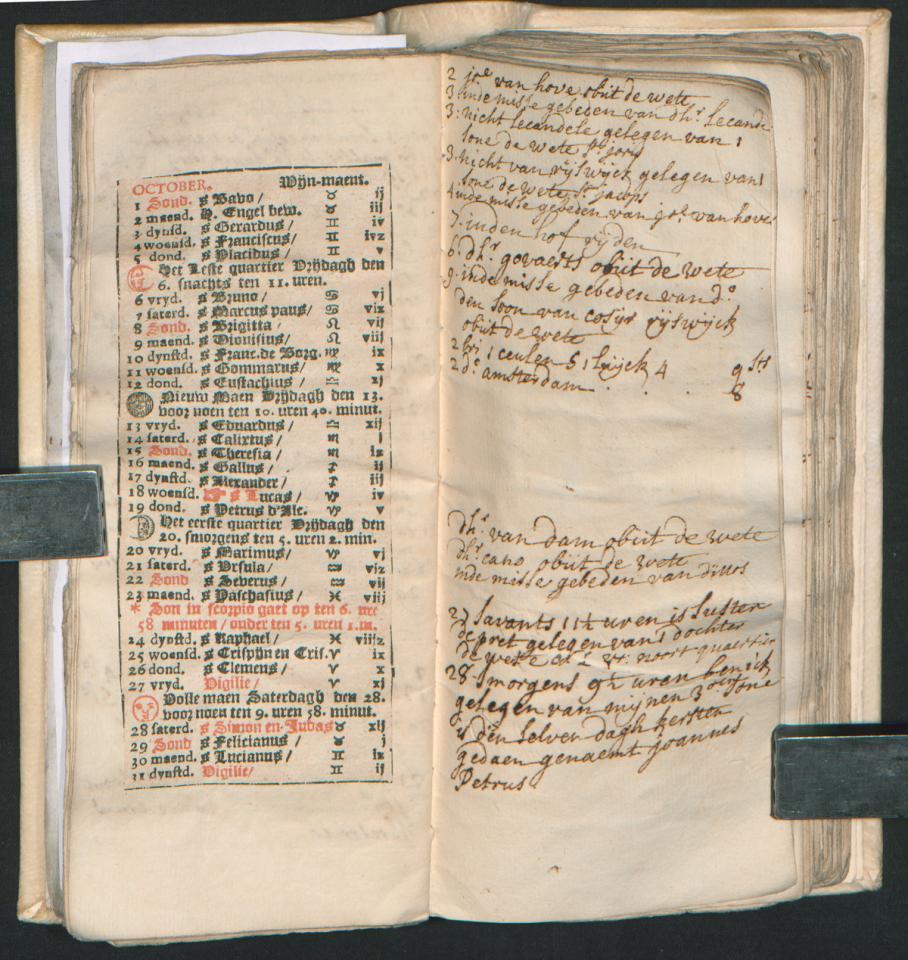 OCTOBER. Wijn-maent.
1 Sond. s Bavo / ♉ ij
2 maend. H. Engel bew. ♉ iij
3 dynsd. s Gerardus / ♊ iv
4 woensd. s Franciscus / ♊ ivz
5 dond. s Placidus / ♊ v
Het Leste quartier Vrijdagh den
6. snachts ten 11. uren.
6 vryd. s Bruno / ♋ vj
7 saterd. s Marcus paus / ♋ viz
8 Sond. s Brigitta / ♌ vij
9 maend. s Dionisius / ♌ viij
10 dynstd. s Franc. de Borg. ♍ ix
11 woensd. s Gommarus / ♍ x
12 dond. s Eustachius / ♎ xj
Nieuw Maen Vrijdagh den 13.
voor noen ten 10. uren 40. minut.
13 vryd. s Eduardus / ♎ xij
14 saterd. s Calixtus / ♏ j
15 Sond. s Theresia / ♏ ix
16 maend. s Gallus / ♐ ij
17 dynstd. s Alexander / ♐ iij
18 woensd. ☞ s Lucas / ♑ iv
19 dond. s Petrus d'Alc. ♑ v
Het eerste quartier Vrijdagh den
20. smorgens ten 5. uren 2. min.
20 vryd. s Maximus / ♑ vj
21 saterd. s Ursula / ♒ viz
22 Sond s Severus / ♒ vij
23 maend. s Paschasius / ♓ viij
* Son in scorpio gaet op ten 6. ure
58 minuten / onder ten 5. uren 1. m.
24 dynstd. s Raphael / ♓ viijz
25 woensd. s Crispijn en Cris. ♈ ix
26 dond. s Clemens / ♈ x
27 vryd. Vigilie / ♈ xj
Volle maen Saterdagh den 28.
voor noen ten 9. uren 58. minut.
28 saterd. s Simon en Judas ♉ xij
29 Sond s Felicianus / ♉ j
30 maend s Lucianus / ♊ ix
31 dynstd. Vigilie / ♊ ij
2 joe van hove obiit de wete
3 inde misse gebeden van dhr. secande
3: nicht secandele gelegen van 1
sone de wete st jorij
3. nicht van rijswijck gelegen van 1
sone de wete st jacops
4 inde misse gebeden van joe. van hove
5: inden hof
6. dhr. govaerts obiit de wete
9: inde misse gebeden van do
den soon van rijswijck
obiit de wete
2 bri 1 ceulen 5 1 luijck 4 9 sts
2 do amsterdam . . . 8
dhr van dam obiit de wete
dhr cano obiit de wete
inde misse gebeden van
27 savants 11½ uren is suster
de pret gelegen van 1 dochter
de wete quartier
28. smorgens 9½ uren ben ick
gelegen van mijnen 3 sone
den selven dagh kersten
gedaen genaemt joannes
Petrus